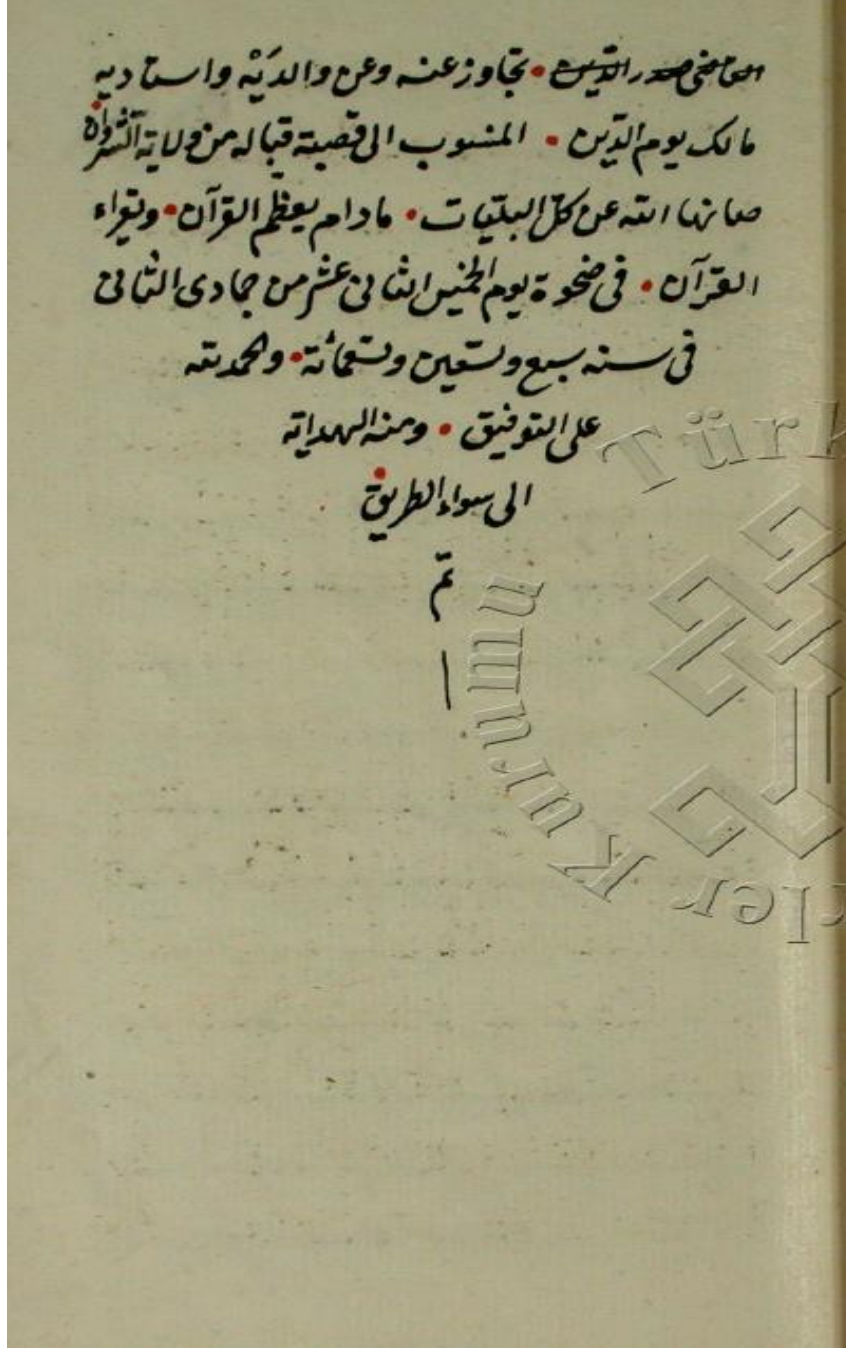 القاضي صدر الدين • تجاوز عنه وعن والدَيْه واستاديه
مالك يوم الدّين • المنسوب الى قصبة قباله من ولاية الشروان
صانها الله عن كلّ البليّات • مادام يعظم القرآن • ويقراء
القرآن • فى ضحوة يوم الخميس الثانى عشر من جمادى الثانى
فى سنه سبع وتسعين وتسعمائة • والحمد لله
على التوفيق • ومنه الهداية
الى سواء الطريق
تمّ
Türk
umu Kurumu
rler